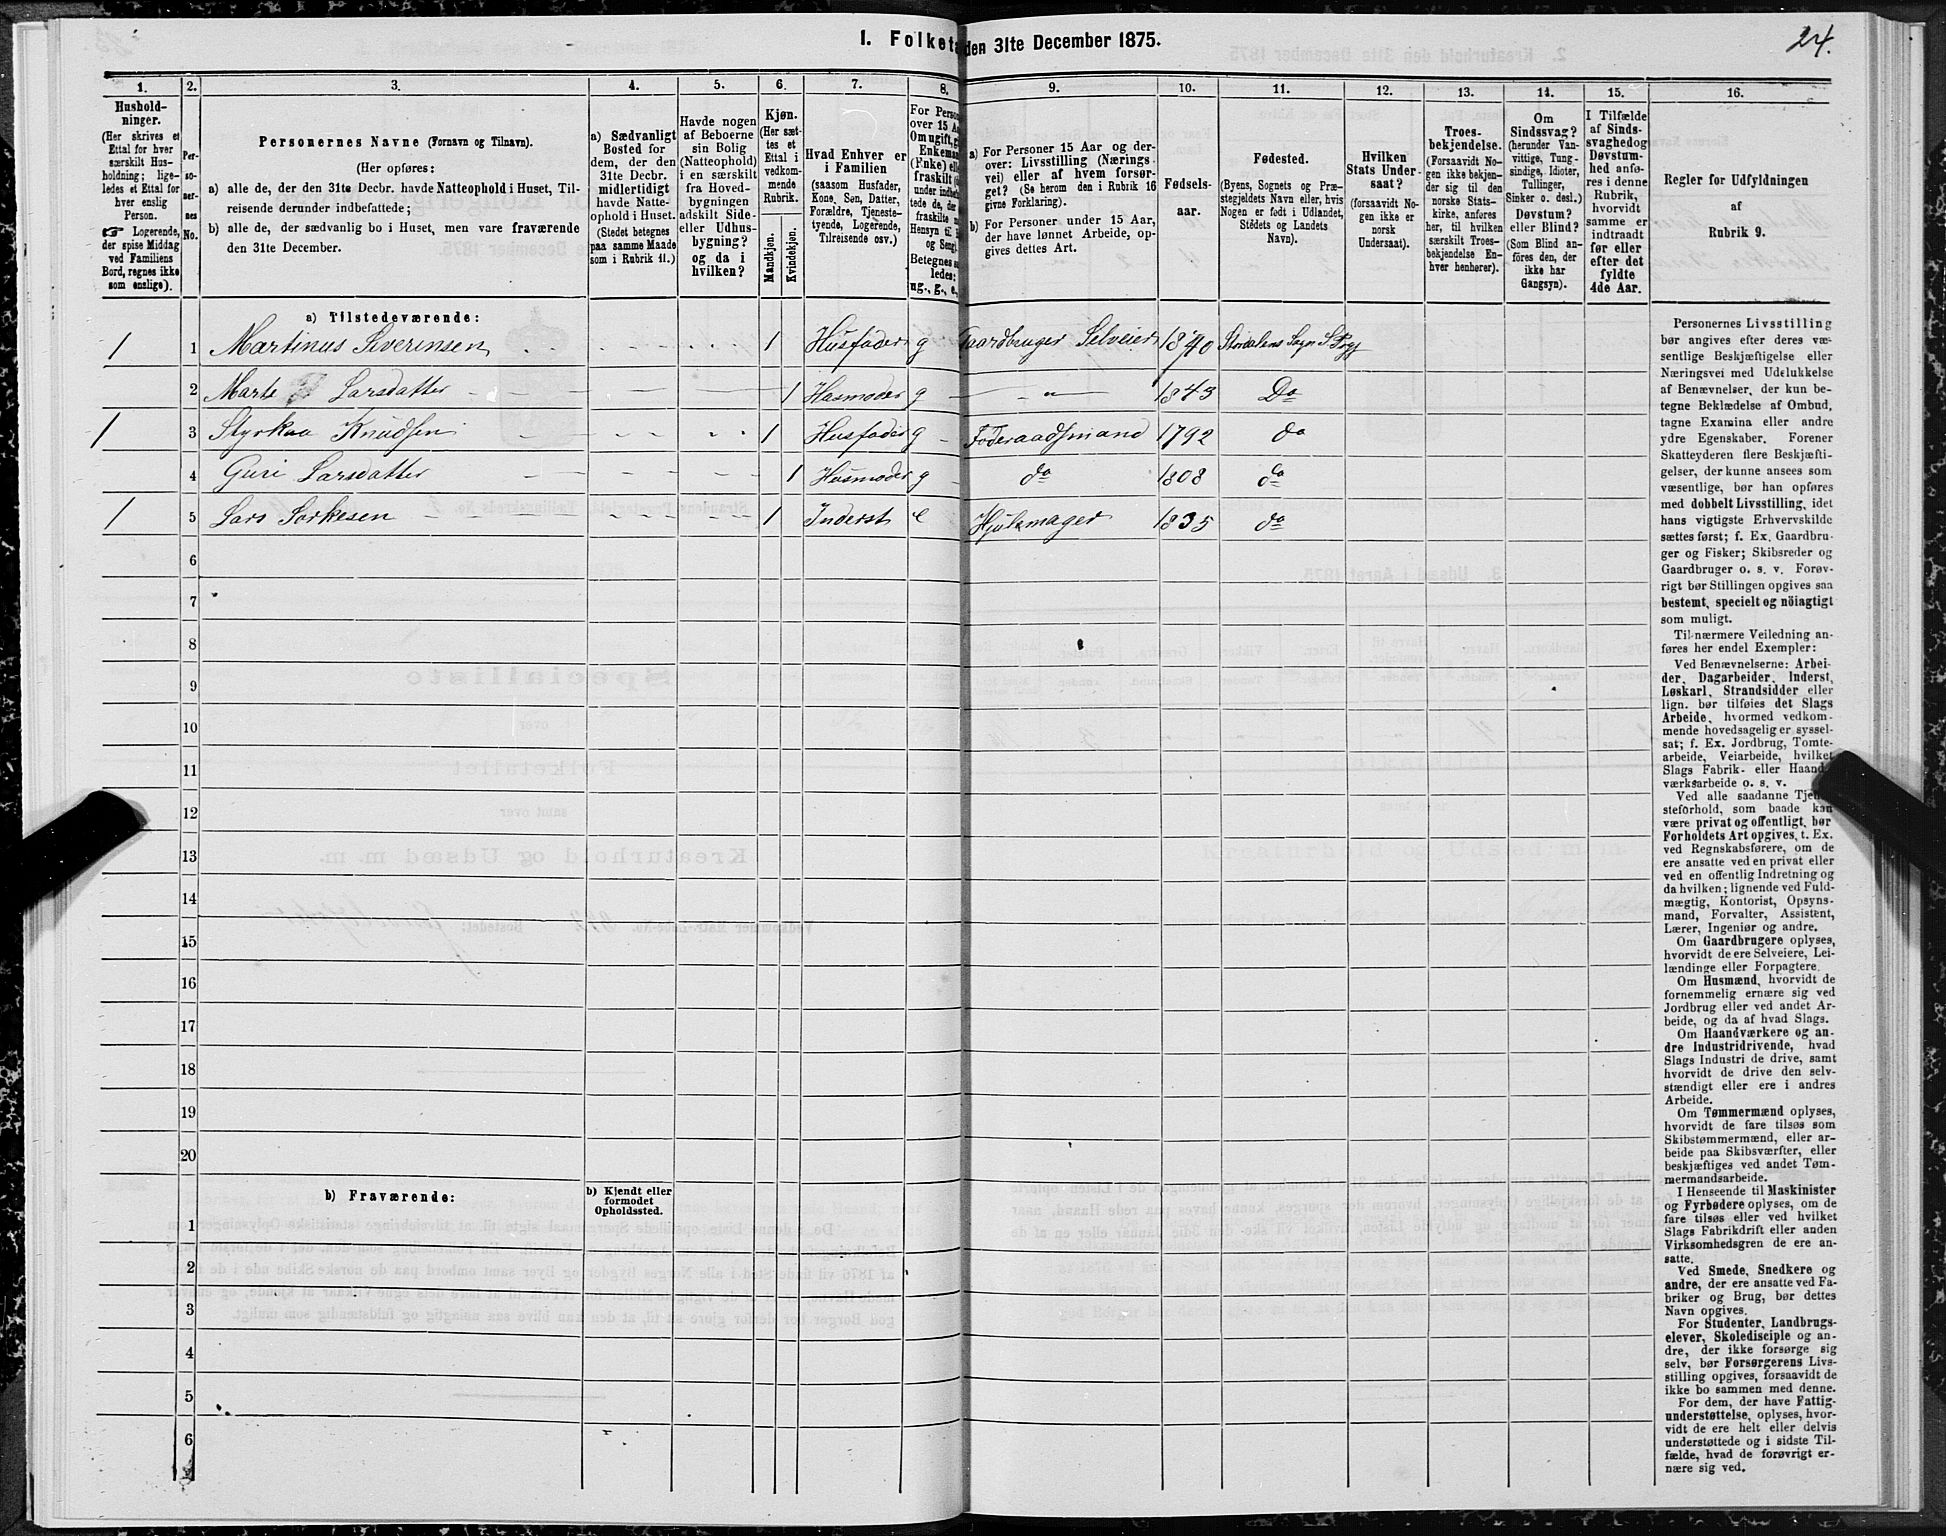 24.
I. Folketa
den 31te December 1875.
1.
2.
3.
4.
5.
6.
7.
8.
9.
10.
11.
12.
13.
14.
15.
16.
Hushold-
ninger.
(Her skrives et
Ettal for hver
særskilt Hus-
holdning; lige-
ledes et Ettal for
hver enslig
Person.
☞ Logerende,
der spise Middag
ved Familiens
Bord, regnes ikke
som enslige).
Per-
so-
ner-
nes
No.
Personernes Navne (Fornavn og Tilnavn).
(Her opføres:
a) alle de, der den 31te Decbr. havde Natteophold i Huset, Til-
reisende derunder indbefattede;
b) alle de, der sædvanlig bo i Huset, men vare fraværende
den 31te December.
a) Sædvanligt
Bosted for
dem, der den
31te Decbr.
midlertidigt
havde Natte-
ophold i Huset.
(Stedet betegnes
paa samme Maade
som i Rubrik 11.)
Havde nogen
af Beboerne
sin Bolig
(Natteophold)
i en særskilt
fra Hoved-
bygningen
adskilt Side-
eller Udhus-
bygning?
og da i
hvilken?
Kjøn.
(Her sæt-
tes et
Ettal i
vedkom-
mende
Rubrik.
Mandkjøn.
Kvindekjøn.
Hvad Enhver er
i Familien
(saasom Husfader,
Kone, Søn, Datter,
Forældre, Tjeneste-
tyende, Logerende,
Tilreisende osv.)
For Person
over 15 Aa
Om ugift, g
Enkeman
(Enke) elle
fraskilt (
under indbe
tede de, der
fraskilte m
Hensyn til
og Seng).
Betegnes sa
ledes:
ug., g., e,
a) For Personer 15 Aar og der-
over: Livsstilling (Nærings-
vei) eller af hvem forsør-
get? (Se herom den i Rubrik 16
givne Forklaring).
b) For Personer under 15 Aar,
der have lønnet Arbeide, op-
gives dettes Art.
Fødsels-
aar.
Fødested.
(Byens, Sognets og Præ-
stegjeldets Navn eller, hvis
Nogen er født i Udlandet,
Stedets og Landets
Navn).
Hvilken
Stats Under-
saat?
(forsaavidt No-
gen ikke er
norsk
Undersaat).
Troes-
bekjendelse.
(Forsaavidt No-
gen ikke bekjen-
der sig til den
norske Stats-
kirke, anføres
her, til hvilken
særskilt Troes-
bekjendelse En-
hver henhører).
Om
Sindssvag?
(herunder Van-
vittige, Tung-
sindige, Idioter,
Tullinger,
Sinker o. desl.)
Døvstum?
eller Blind?
(Som Blind an-
føres den, der
ikke har
Gangsyn).
I Tilfælde
af Sinds-
svaghed og
Døvstum-
hed anfø-
res i denne
Rubrik,
hvorvidt
samme er
indtraadt
før eller
efter det
fyldte
4de Aar.
Regler for Udfyldningen
af
Rubrik 9.
a) Tilstedeværende:
1 1 Martinus Siverinsen 1 Husfader g Gaardbruger Selveier 1840 Stordalens Sogn S Prgj
2 Marte Larsdatter 1 Husmoder g — „ — 1843 Do
1 3 Styrkaa Knudsen 1 Husfader g Føderaadsmand 1792 do
4 Guri Larsdatter 1 Husmoder g do 1808 do
1 5 Lars Sørkesen 1 Inderst e Hjulmager 1835 do
6
7
8
9
10
11
12
13
14
15
16
17
18
19
20
b) Fraværende:
b) Kjendt eller
formodet
Opholdssted.
1
2
3
4
5
6
Personernes Livsstilling
bør angives efter deres væ-
sentlige Beskjæftigelse eller
Næringsvei med Udelukkelse
af Benævnelser, der kun be-
tegne Beklædelse af Ombud,
tagne Examina eller andre
ydre Egenskaber. Forener
Skatteyderen flere Beskjæfti-
gelser, der kunne ansees som
væsentlige, bør han opføres
med dobbelt Livsstilling, idet
hans vigtigste Erhvervskilde
sættes først; f. Ex. Gaardbru-
ger og Fisker; Skibsreder og
Gaardbruger o. s. v. Forøv-
rigt bør Stillingen opgives saa
bestemt, specielt og nöiagtigt
som muligt.
Til nærmere Veiledning an-
føres her endel Exempler:
Ved Benævnelserne: Arbei-
der, Dagarbeider, Inderst,
Løskarl, Strandsidder eller
lign. bør tilføies det Slags
Arbeide, hvormed vedkom-
mende hovedsagelig er syssel-
sat; f. Ex. Jordbrug, Tomte-
arbeide, Veiarbeide, hvilket
Slags Fabrik- eller Haand-
værksarbeide o. s. v.
Ved alle saadanne Tjene-
steforhold, som baade kan
være privat og offentligt, bør
Forholdets Art opgives, t. Ex.
ved Regnskabsførere, om de
ere ansatte ved en privat eller
ved en offentlig Indretning og
da hvilken; lignende ved Fuld-
mægtig, Kontorist, Opsyns-
mand, Forvalter, Assistent,
Lærer, Ingeniør og andre.
Om Gaardbrugere oplyses,
hvorvidt de ere Selveiere, Lei-
lændinge eller Forpagtere.
Om Husmænd, hvorvidt de
fornemmelig ernære sig ved
Jordbrug eller ved andet Ar-
beide, og da af hvad Slags.
Om Haandværkere og an-
dre Industridrivende, hvad
Slags Industri de drive, samt
hvorvidt de drive den selv-
stændigt eller ere i andres
Arbeide.
Om Tømmermænd oplyses,
hvorvidt de fare tilsøs som
Skibstømmermænd, eller ar-
beide paa Skibsværfter, eller
beskjæftiges ved andet Tøm-
mermandsarbeide.
I Henseende til Maskinister
og Fyrbødere oplyses, om de
fare tilsøs eller ved hvilket
Slags Fabrikdrift eller anden
Virksomhedsgren de ere an-
satte.
Ved Smede, Snedkere og
andre, der ere ansatte ved Fa-
briker og Brug, bør dettes
Navn opgives.
For Studenter, Landbrugs-
elever, Skoledisciple og an-
dre, der ikke forsørge sig
selv, bør Forsørgerens Livs-
stilling opgives, forsaavidt de
ikke bo sammen med denne.
For dem, der have Fattig-
understøttelse, oplyses, hvor-
vidt de ere helt eller delvis
understøttede og i sidste Til-
fælde, hvad de forøvrigt er-
nære sig ved.